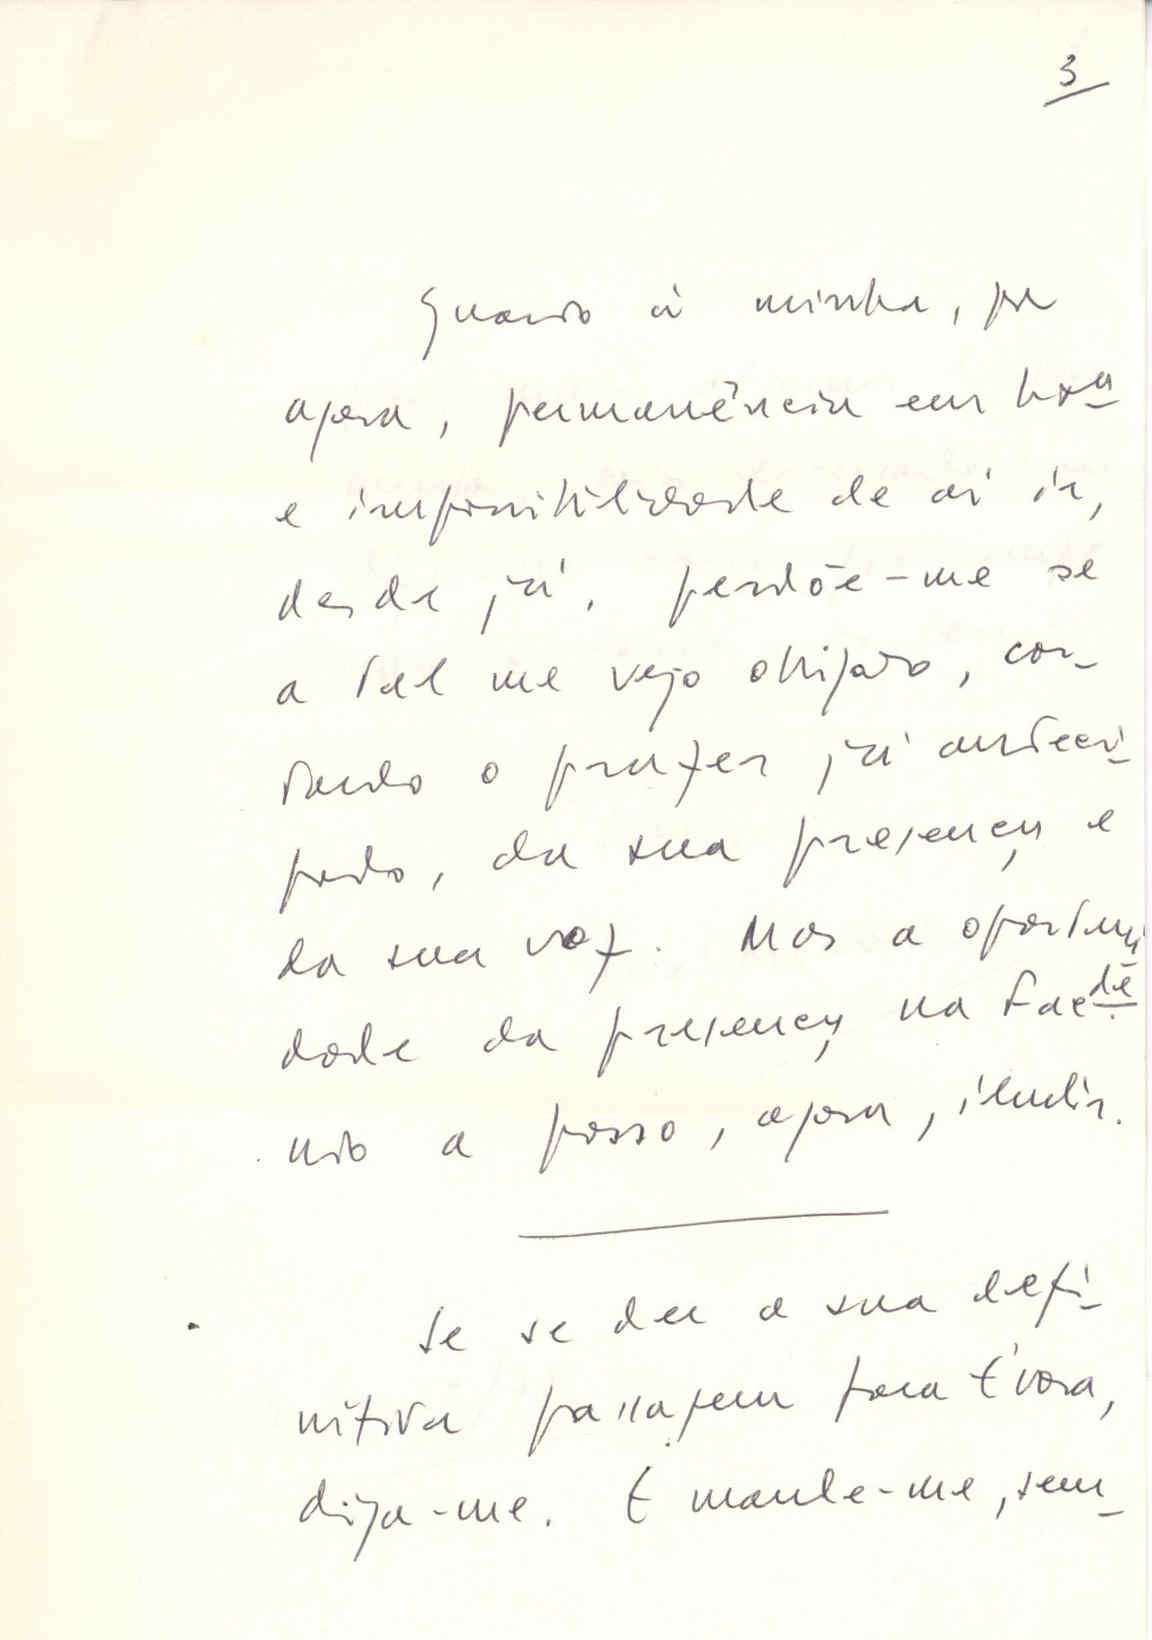 3
Quando à minha, por
agora, permanência em Lxa
e impossibilidade de aí ir,
desde já, perdõe-me se
a tal me vejo obrigado, cor-
tando o prazer já anteci-
pado, da sua presença e
da sua voz. Mas a oportuni
dade da presença na Facde
não a posso, agora, iludir.
Se se der a sua defi-
nitiva passagem para Évora,
diga-me. E mande-me, sem-